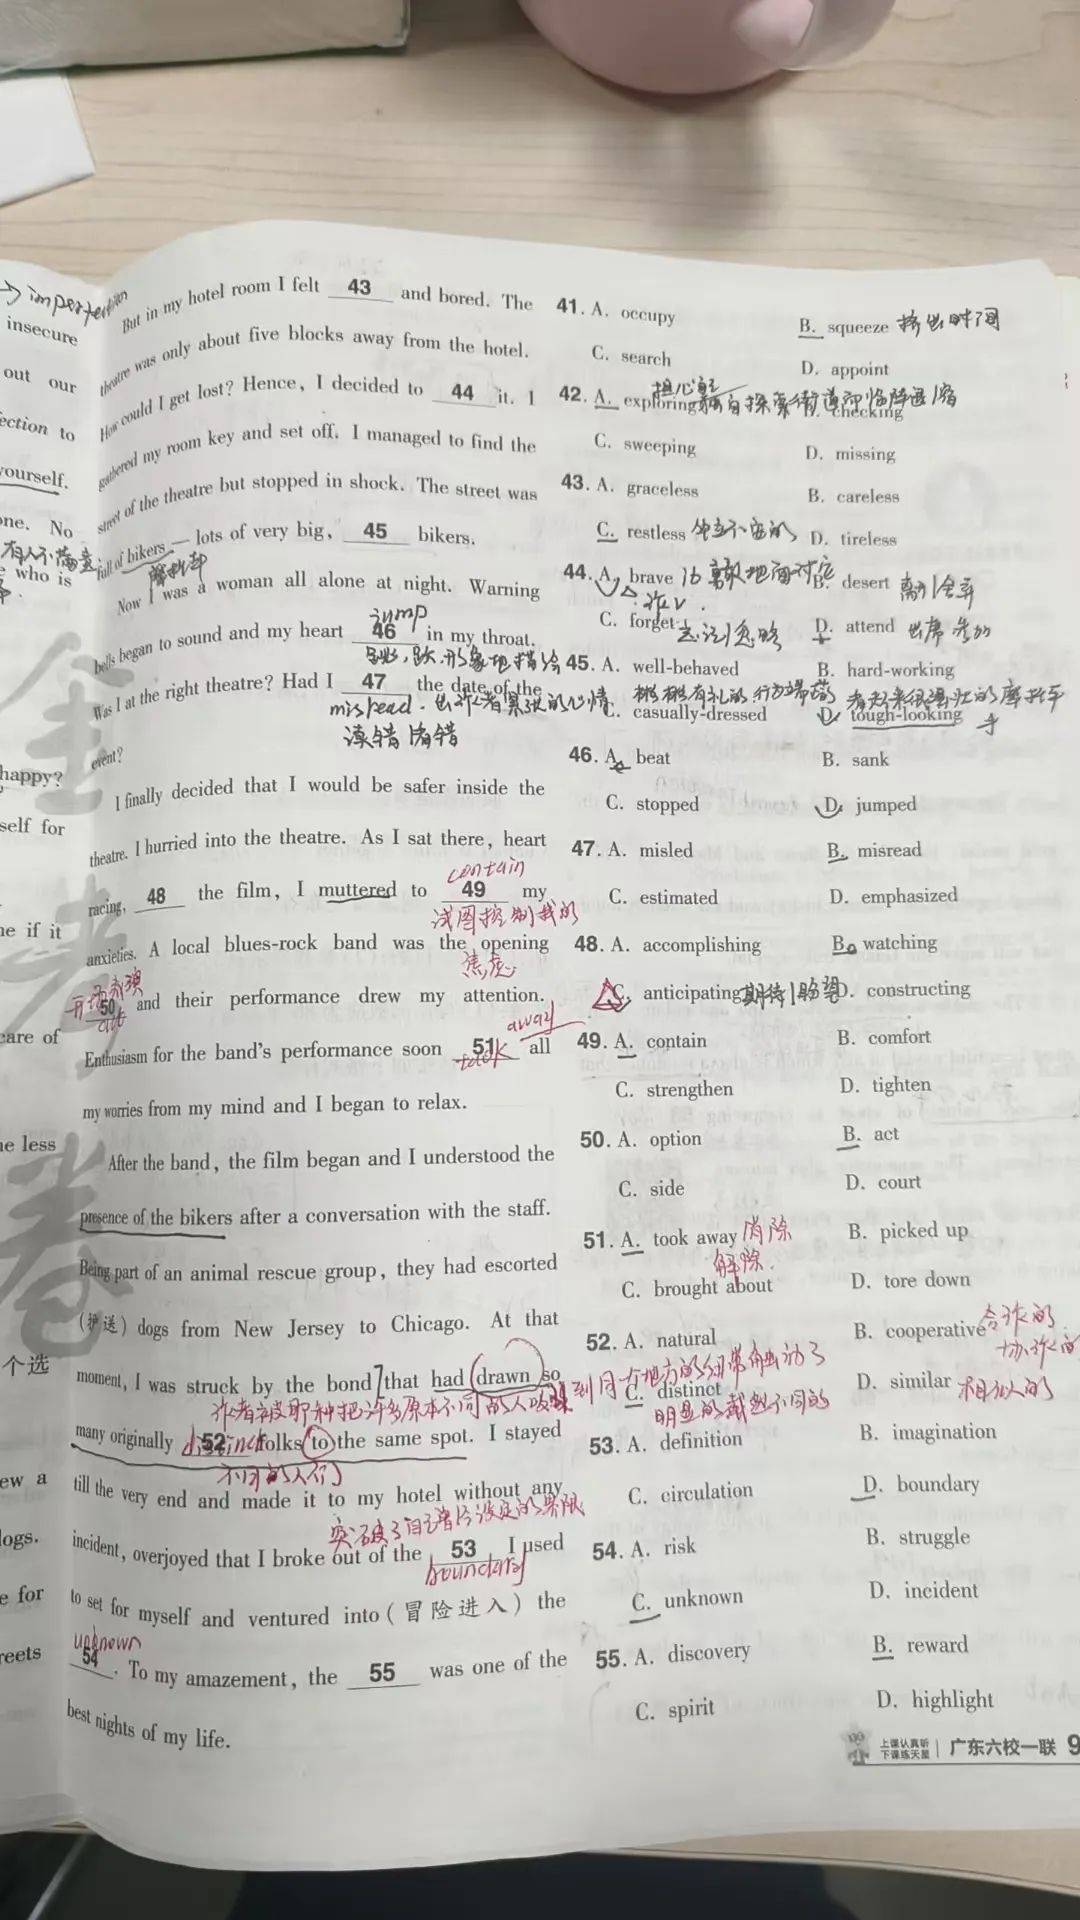 insecure
out our
ection to
yourself.
one. No
who is
happy?
self for
ne if it
care of
ne less
个选
ew a
logs.
e for
reets
金考卷
But in my hotel room I felt 43 and bored. The
theatre was only about five blocks away from the hotel.
How could I get lost? Hence, I decided to 44 it. I
gathered my room key and set off. I managed to find the
street of the theatre but stopped in shock. The street was
full of bikers — lots of very big, 45 bikers.
摩托车
Now I was a woman all alone at night. Warning
jump
bells began to sound and my heart 46 in my throat.
Was I at the right theatre? Had I 47 the date of the
misread
读错 看错
event?
I finally decided that I would be safer inside the
theatre. I hurried into the theatre. As I sat there, heart
contain
racing, 48 the film, I muttered to 49 my
试图控制我的
anxieties. A local blues-rock band was the opening
焦虑
50 and their performance drew my attention.
act
away
Enthusiasm for the band's performance soon 51 all
took
my worries from my mind and I began to relax.
After the band, the film began and I understood the
presence of the bikers after a conversation with the staff.
Being part of an animal rescue group, they had escorted
(护送) dogs from New Jersey to Chicago. At that
moment, I was struck by the bond that had drawn so
many originally 52 folks to the same spot. I stayed
distinct
不同的人们
till the very end and made it to my hotel without any
突破了自己曾经设定的界限
incident, overjoyed that I broke out of the 53 I used
boundary
to set for myself and ventured into (冒险进入) the
unknown
54. To my amazement, the 55 was one of the
best nights of my life.
41. A. occupy B. squeeze 挤出时间
C. search D. appoint
42. A. exploring B. checking
C. sweeping D. missing
43. A. graceless B. careless
C. restless D. tireless
44. A. brave B. desert
C. forget 忘记/忽略 D. attend 出席 参加
45. A. well-behaved B. hard-working
C. casually-dressed D. tough-looking
46. A. beat B. sank
C. stopped D. jumped
47. A. misled B. misread
C. estimated D. emphasized
48. A. accomplishing B. watching
C. anticipating 期待/盼望 D. constructing
49. A. contain B. comfort
C. strengthen D. tighten
50. A. option B. act
C. side D. court
51. A. took away 消除 B. picked up
解除.
C. brought about D. tore down
52. A. natural B. cooperative 合作的
C. distinct D. similar 相似的
明显的截然不同的
53. A. definition B. imagination
C. circulation D. boundary
54. A. risk B. struggle
C. unknown D. incident
55. A. discovery B. reward
C. spirit D. highlight
上课认真听
下课练天星
广东六校一联 9